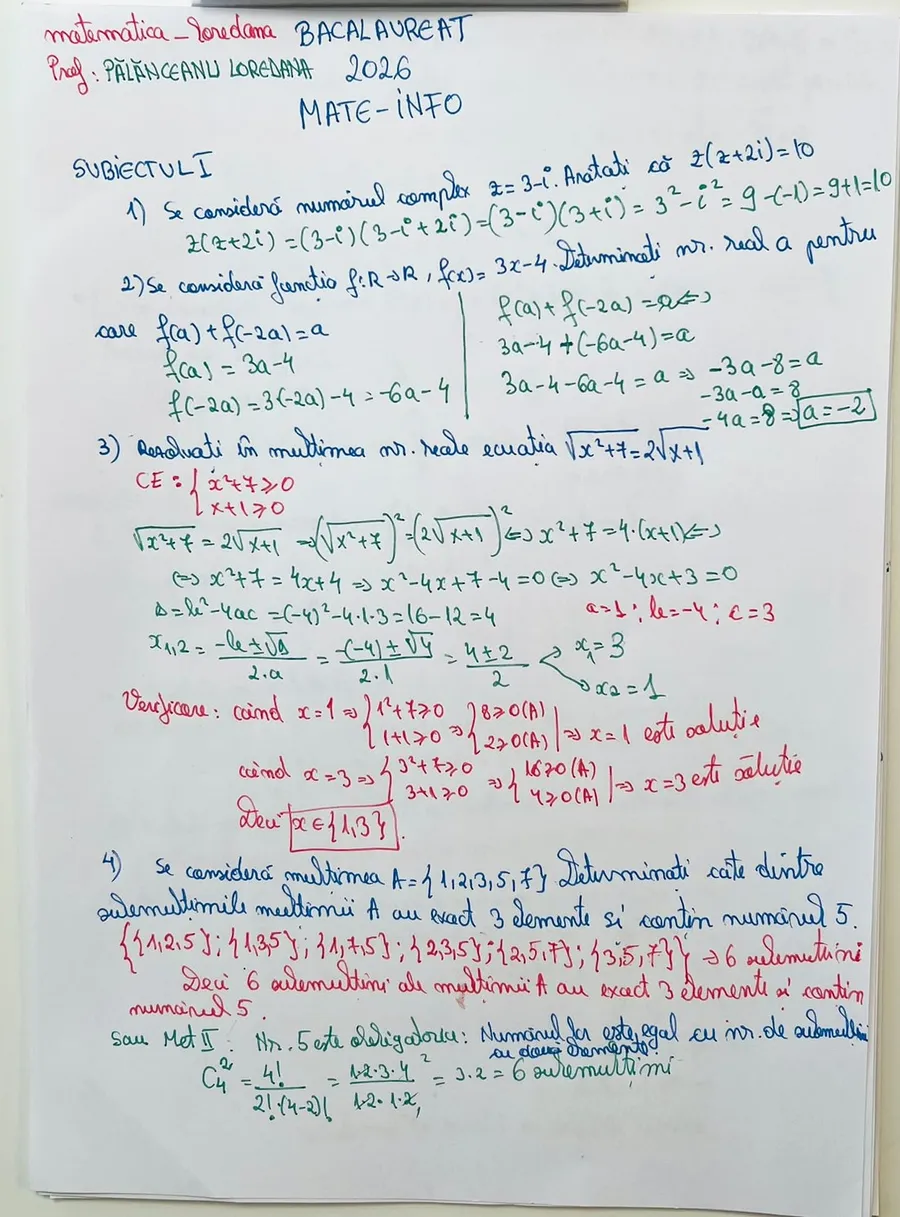 matematica_loredana BACALAUREAT
Prof: PĂLĂNCEANU LOREDANA 2026
MATE-iNFO
SUBiECTUL I
1) Se consideră numărul complex z=3-i. Aratati că z(z+2i)=10
z(z+2i)=(3-i)(3-i+2i)=(3-i)(3+i)=3²-i²=9-(-1)=9+1=10
2) Se consideră functia f:R→R, f(x)=3x-4. Determinati nr. real a pentru
care f(a)+f(-2a)=a
f(a)=3a-4
f(-2a)=3(-2a)-4=-6a-4
f(a)+f(-2a)=a⇔
3a-4+(-6a-4)=a
3a-4-6a-4=a ⇒ -3a-8=a
-3a-a=8
-4a=8 ⇒ a=-2
3) Rezolvati în multimea nr. reale ecuatia √x²+7=2√x+1
CE: { x²+7≥0
x+1≥0
√x²+7=2√x+1 ⇒(√x²+7)²=(2√x+1)²⇔x²+7=4·(x+1)⇔
⇔x²+7=4x+4 ⇒ x²-4x+7-4=0⇔ x²-4x+3=0
Δ=b²-4ac=(-4)²-4·1·3=16-12=4 a=1; b=-4; c=3
x1,2=-b±√Δ/2·a=-(-4)±√4/2·1=4±2/2 x1=3
x2=1
Verificare: când x=1⇒{1²+7≥0 ⇒{8≥0(A) |⇒x=1 este soluție
1+1≥0 2≥0(A)
când x=3⇒{3²+7≥0 ⇒{16≥0(A) |⇒x=3 este soluție
3+1≥0 4≥0(A)
Deci x∈{1,3}.
4) Se consideră multimea A={1,2,3,5,7} Determinati câte dintre
submultimile multimii A au exact 3 elemente si contin numărul 5.
{{1,2,5};{1,3,5};{1,7,5};{2,3,5};{2,5,7};{3,5,7}}→6 submultimi
Deci 6 submultimi ale multimii A au exact 3 elemente si contin
numărul 5.
Sau Met II: Nr. 5 este obligatoriu: Numărul lor este egal cu nr. de submultimi
cu doua elemente.
C₄²=4!/2!·(4-2)!=1·2·3·4²/1·2·1·2,=3·2=6 submultimi